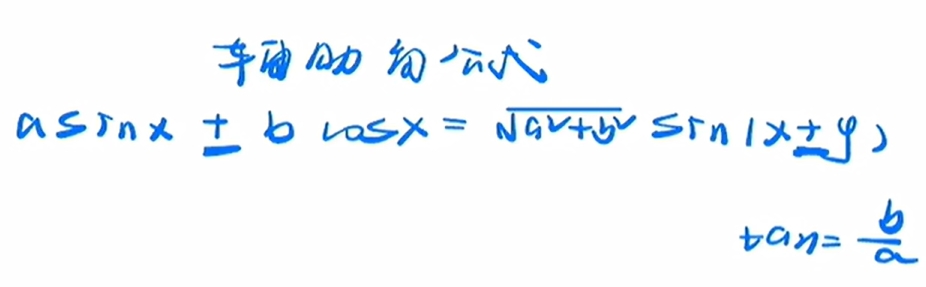 辅助角公式
a sin x ± b cos x = √a²+b² sin(x±φ)
tan = b/a